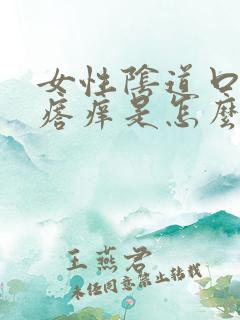 女性陰道口
痞痒是怎麼
王燕君
未经同意禁止转载